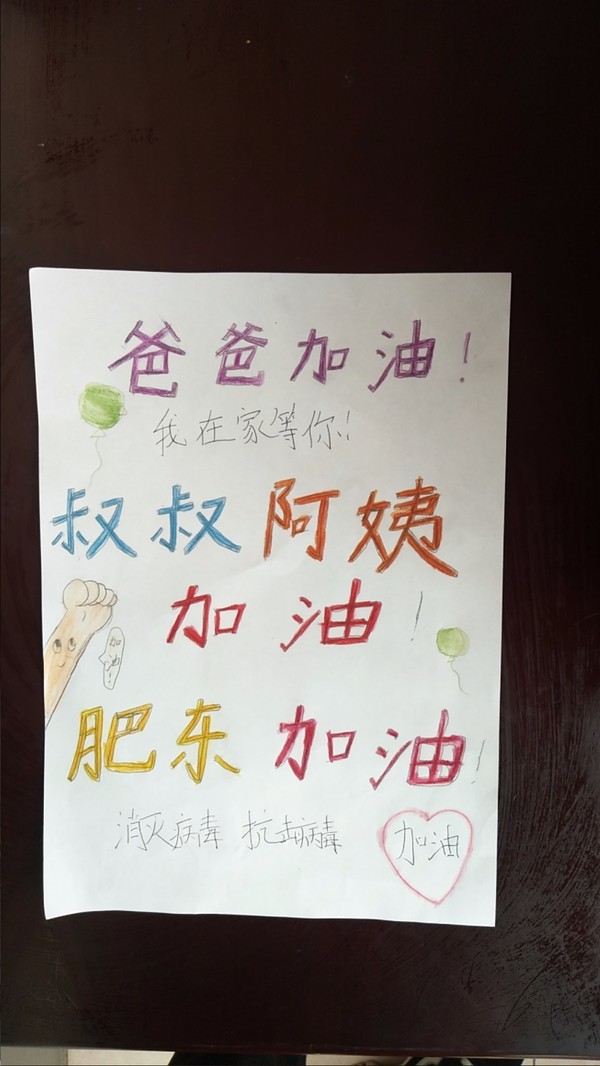 爸爸加油!
我在家等你!
叔叔阿姨
加油!
加油!
肥东加油!
消灭病毒 抗击病毒
加油